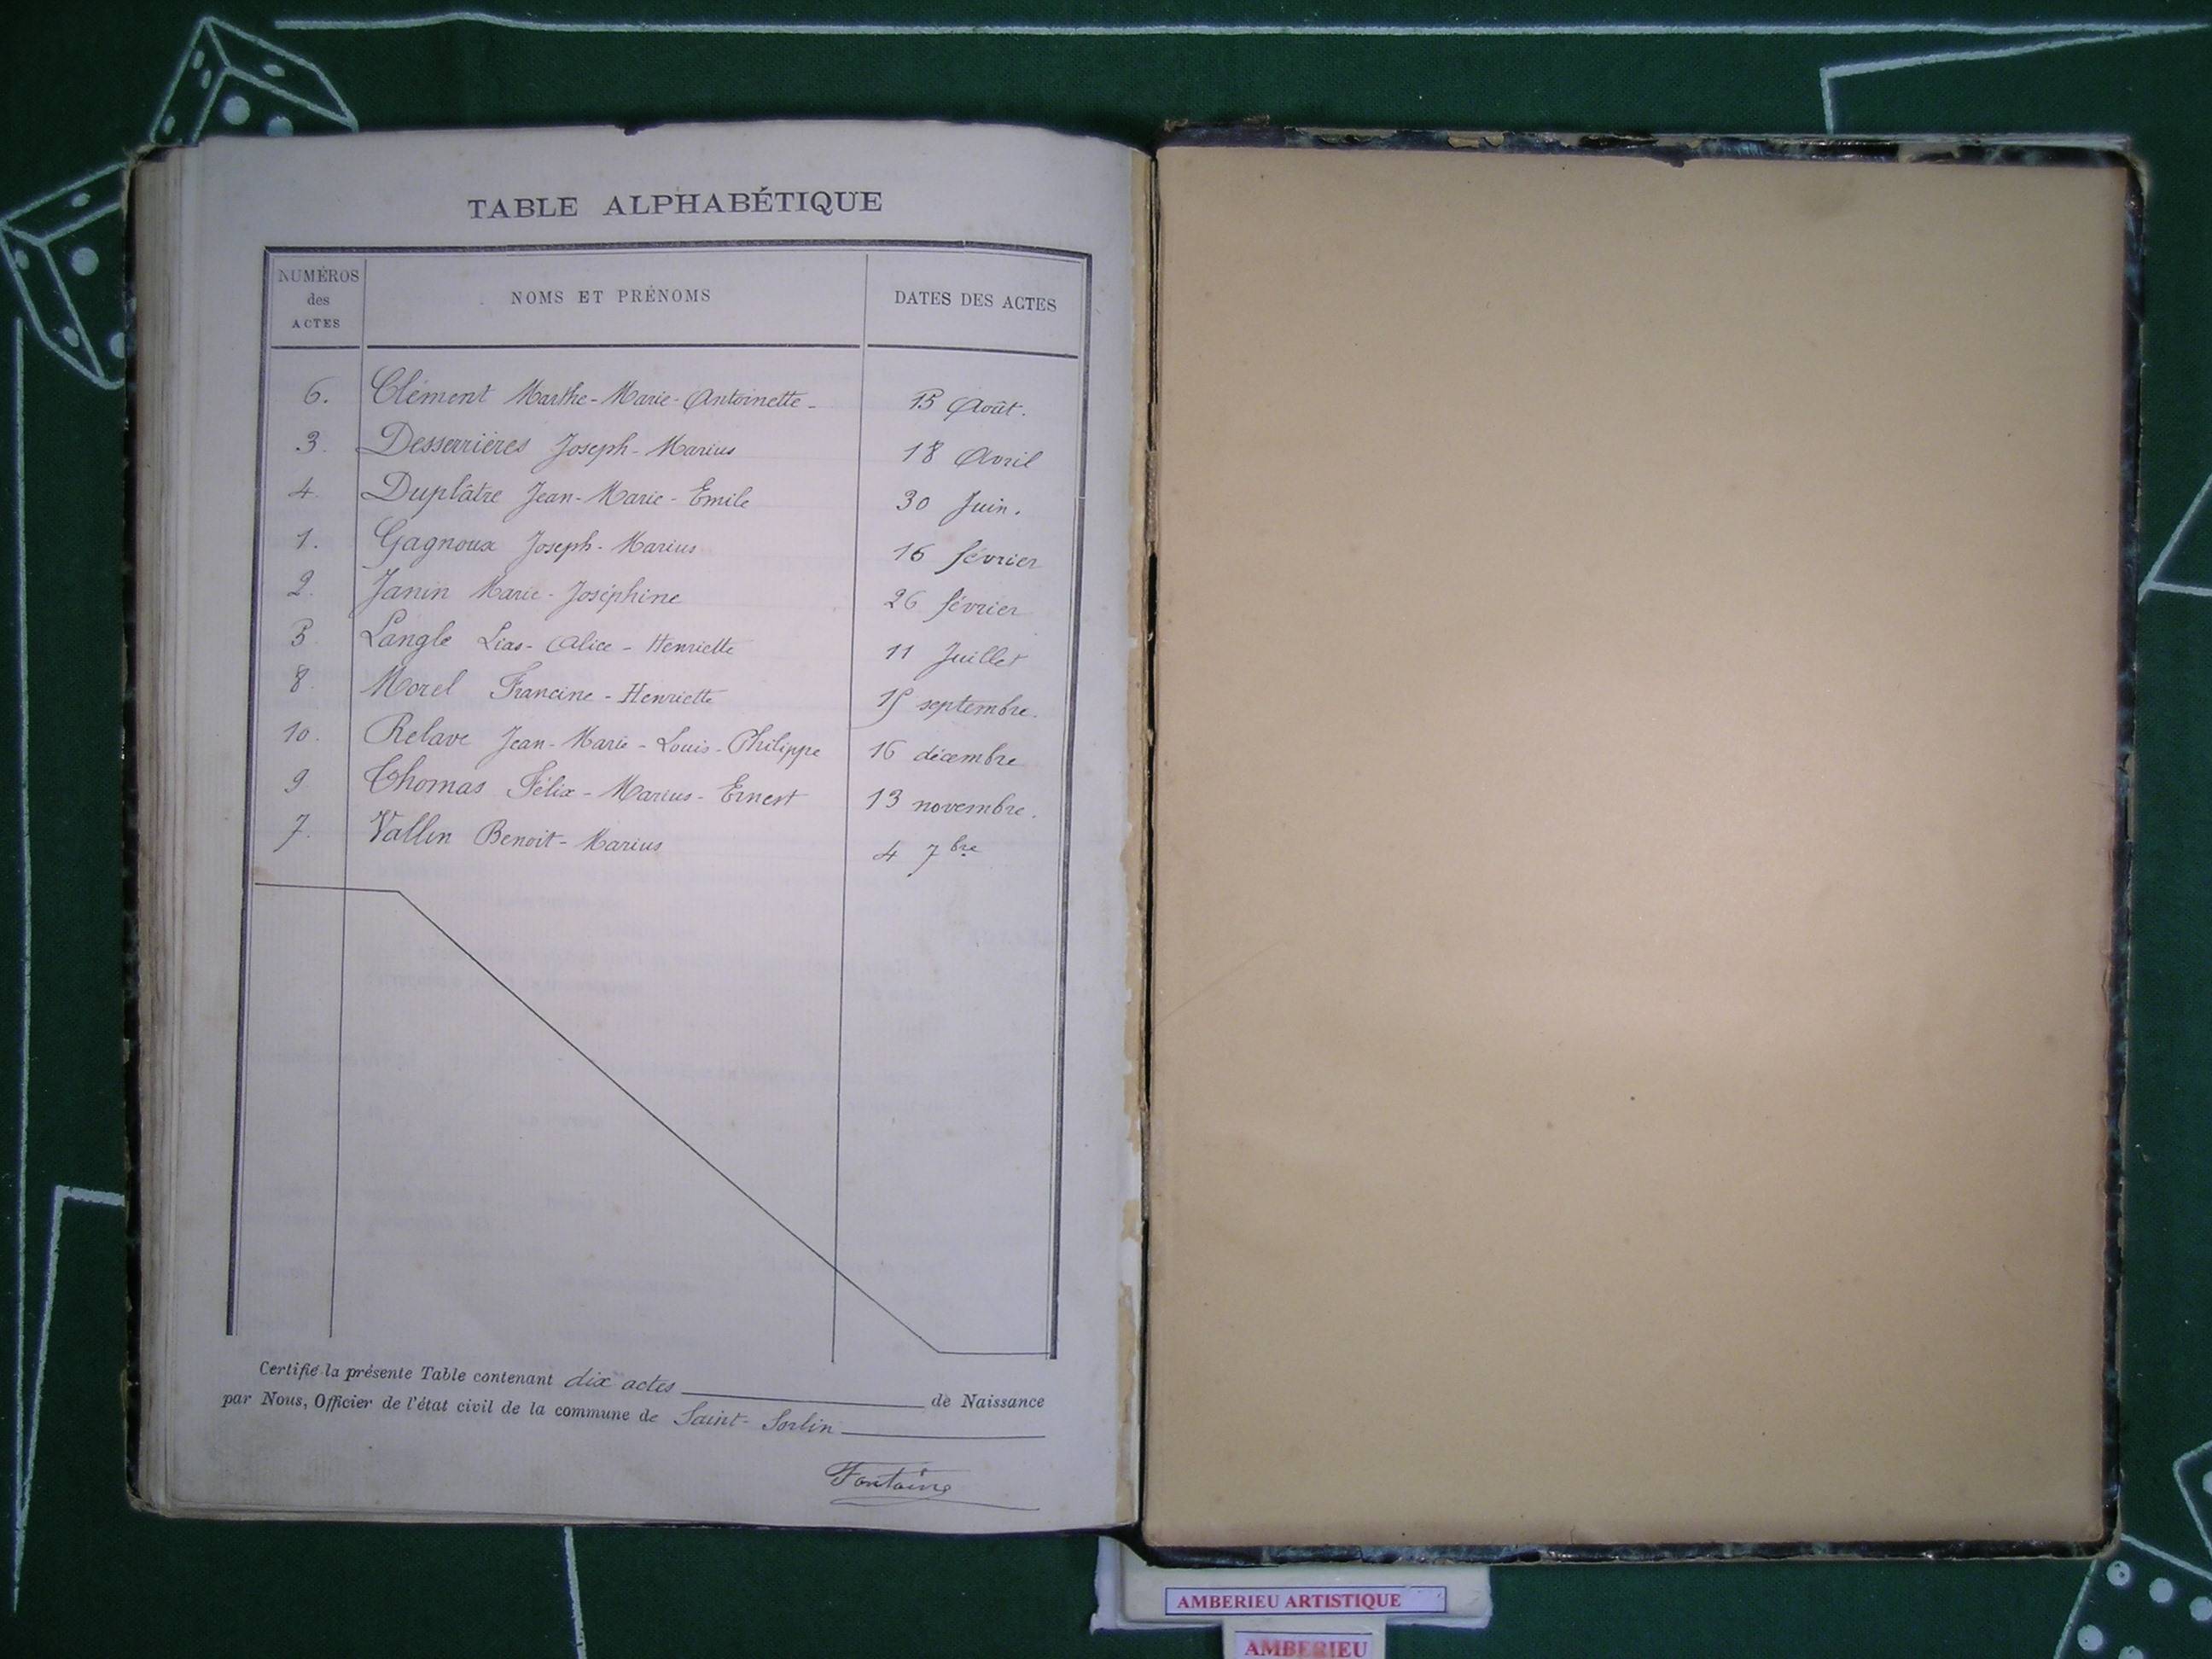 TABLE ALPHABÉTIQUE
NUMÉROS des ACTES NOMS ET PRÉNOMS DATES DES ACTES
6. Clément Marthe-Marie-Antoinette- 15 Août.
3. Desserrières Joseph-Marius 18 Avril
4. Duplâtre Jean-Marie-Emile 30 Juin.
1. Gagnoux Joseph-Marius 16 février
2. Janin Marie-Joséphine 26 février
5. Langle Alice-Henriette 11 Juillet
8. Morel Francine-Henriette 15 septembre.
10. Relave Jean-Marie-Louis-Philippe 16 décembre
9 Thomas Félix-Marius-Ernest 13 novembre.
7. Vallin Benoit-Marius 4 7bre
Certifié la présente Table contenant dix actes de Naissance
par Nous, Officier de l'état civil de la commune de Saint-Sorlin
Fontaine
AMBERIEU ARTISTIQUE
AMBERIEU